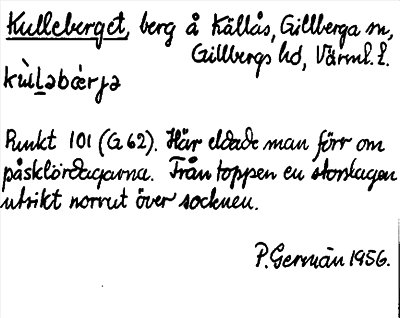 Kulleberget, berg å Källås, Gillberga sn,
Gillbergs hd, Värml. l.
kùl̠əbær̀jə
Punkt 101 (G 62). Här eldade man förr om
påsklördagarna. Från toppen en storslagen
utsikt norrut över socknen.
P. Germän 1956.